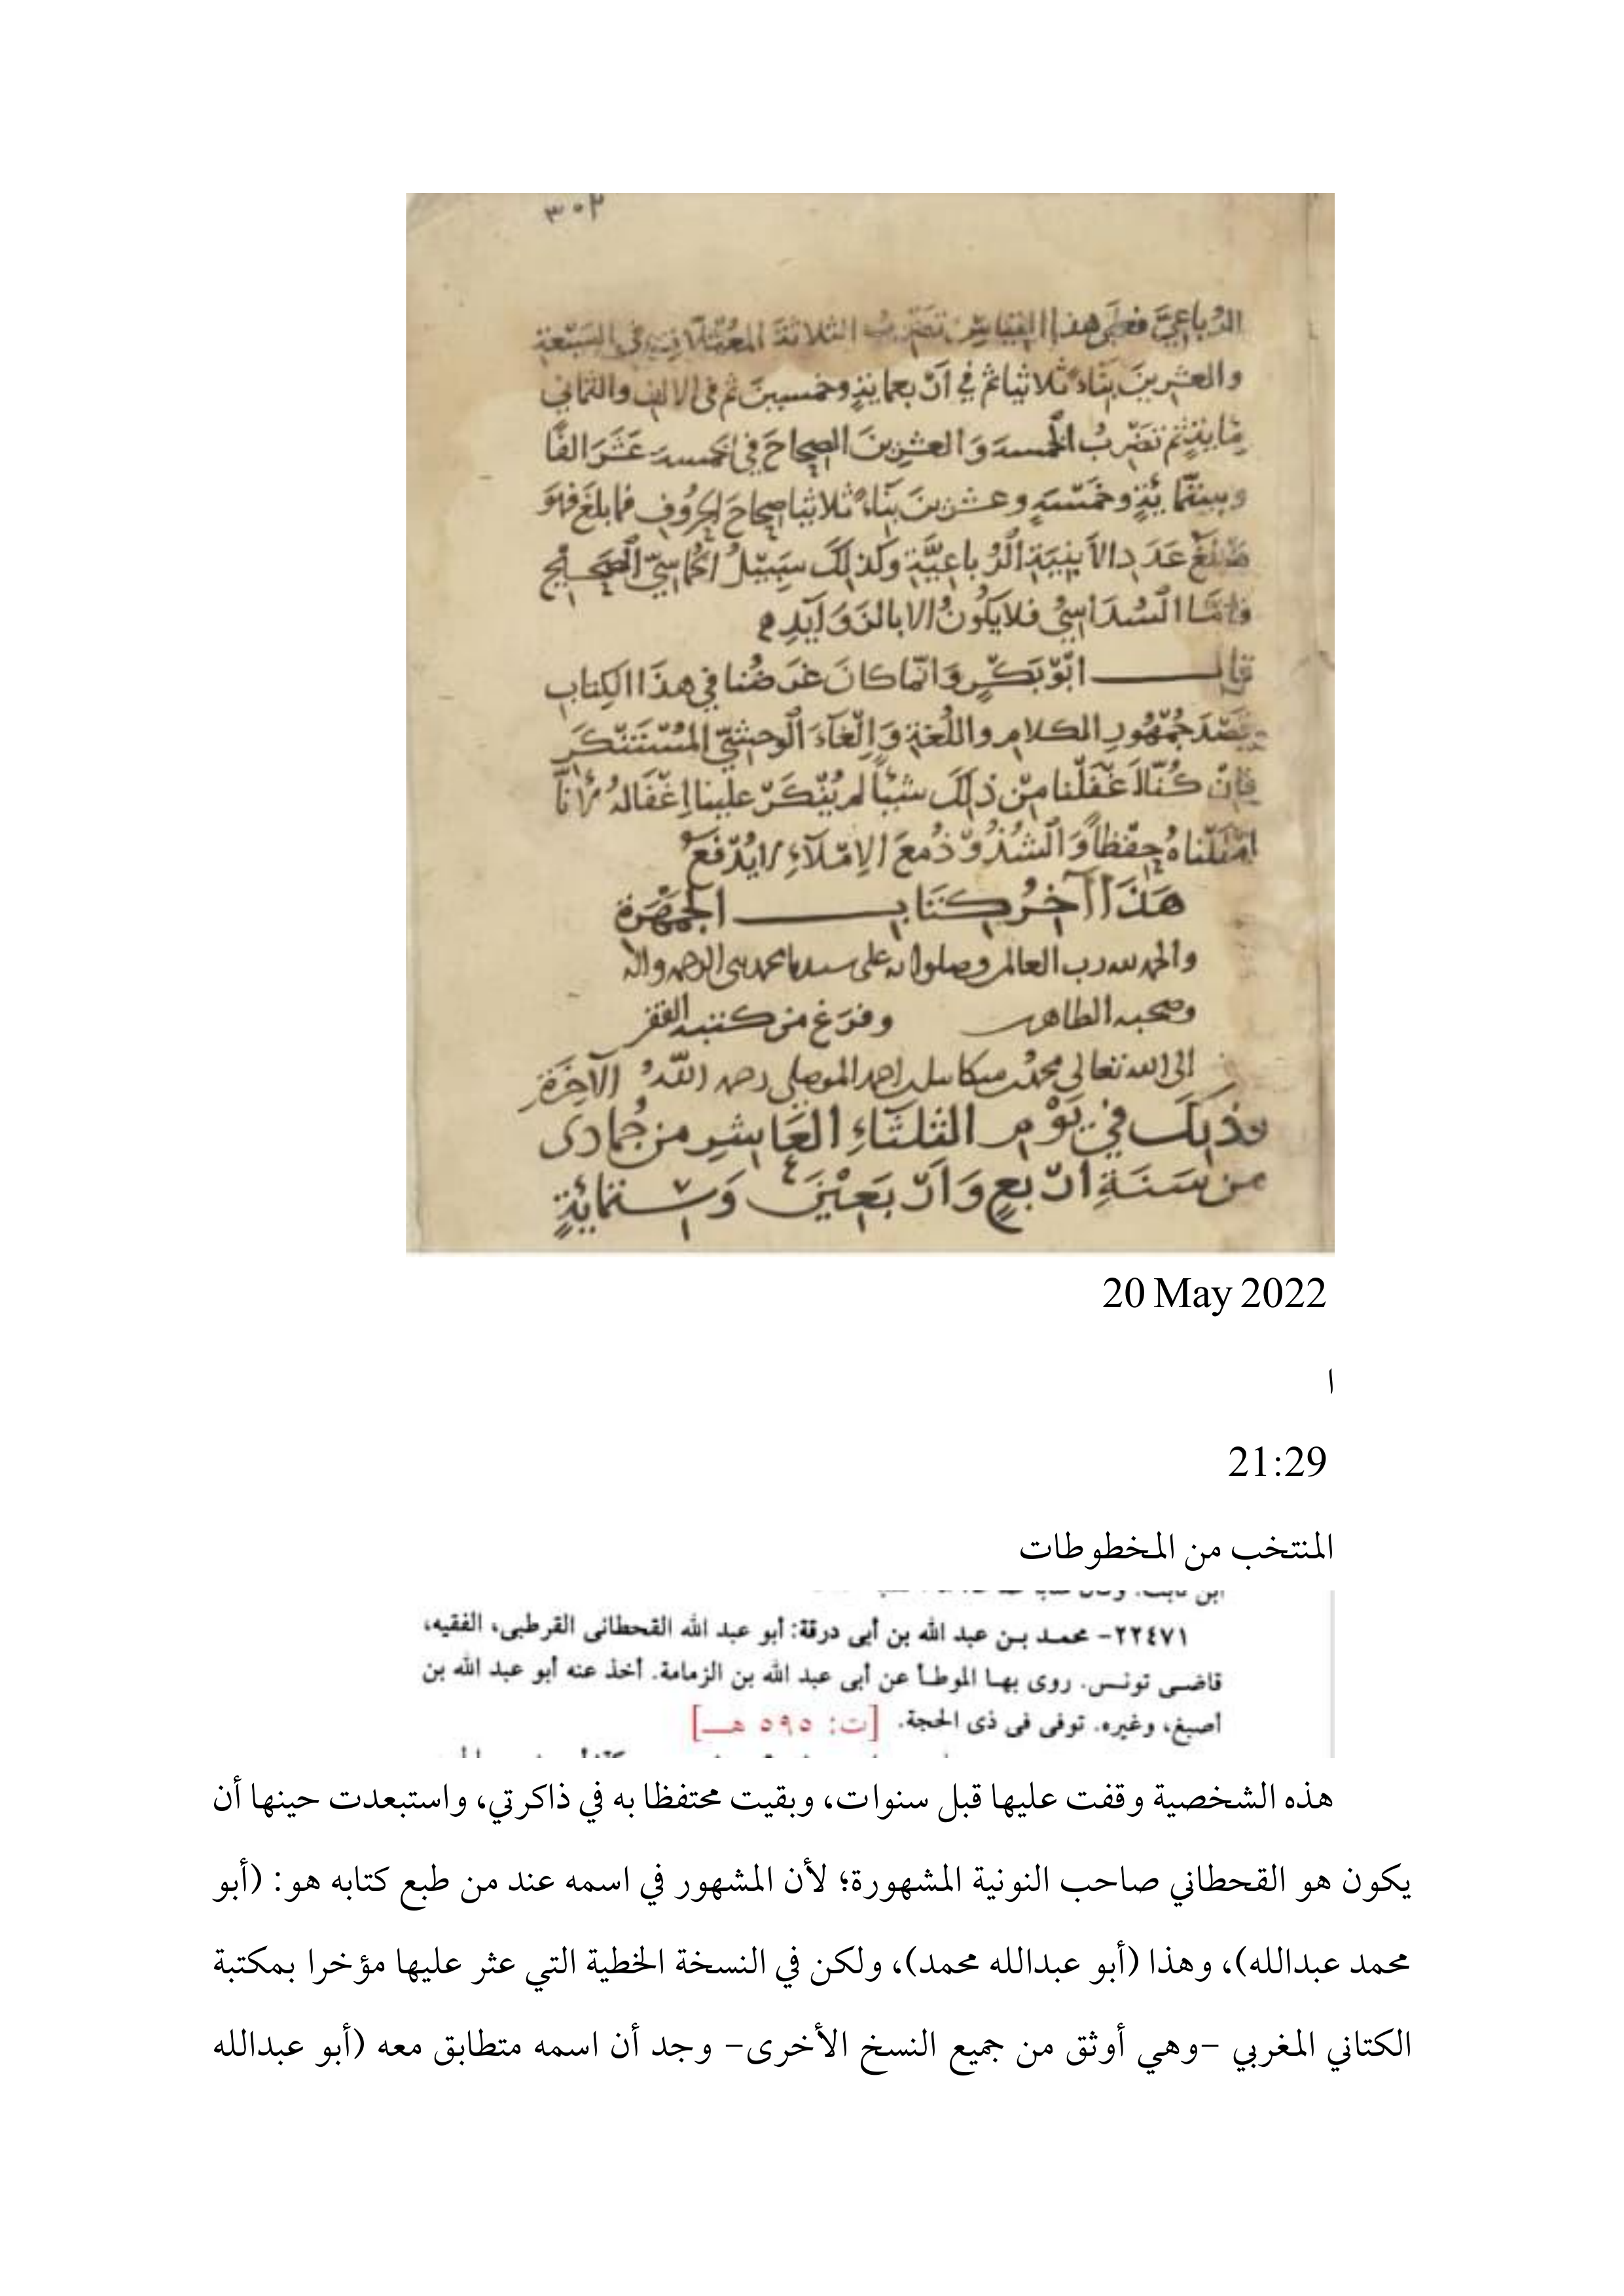 ٣٠٢
الرباعيَّ فعلى هذا القياسِ تضربُ الثلاثةَ المعتلّات في السبعة
والعشرينَ بناءً ثلاثيا ثم في أربعمايةٍ وخمسينَ ثم في الالف والثماني
مايةٍ ثم تضربُ الخمسة والعشرينَ الصحاحَ في خمسة عَشَرَ الفًا
وستمّائةٍ وخمسةٍ وعشرينَ بناءً ثلاثيا صحاحَ الحروفِ فما بلغَ فهوَ
مَبلَغُ عَدَدِ الأبنِيَةِ الرُّباعِيَّةِ وكذلكَ سَبيلُ الخُماسِيِّ الصحيحِ
فأمّا السُّداسِيُّ فلا يكونُ الا بالزوَايدِ
قال ابُو بَكرٍ وَانّما كانَ غرَضُنا في هذَا الكِتابِ
قَصْدَ جُمْهُورِ الكلامِ واللُّغةِ وَإلْغَاءَ الوَحشيِّ المُسْتَنْكَرِ
فإنْ كُنّا أغفَلْنا مِن ذلكَ شيئاً لم يُنْكَرْ علينا إغفالُهُ لأنّا
امْلَلْناهُ حِفْظاً وَالشُّذُوذُ معَ الإِمْلاءِ لا يُدْفَعُ
هَذَا آخِرُ كتَابِ الجَمْهَرَة
والحمد لله رب العالمين وصلواته على سيدنا محمد نبي الرحمة واله
وصحبه الطاهرين وفرغ من كتبه الفقير
الى الله تعالى محمد بن ميكائيل بن احمد الموصلي رحمه اللهُ الآخِرَة
وذلكَ في يَوْمِ الثلثَاءِ العَاشِرِ من جُمَادى
من سَنَةِ اربعٍ وَاربَعينَ وَستمائةٍ
20 May 2022
ا
21:29
المنتخب من المخطوطات
٢٢٤٧١- محمد بن عبد الله بن أبى درقة: أبو عبد الله القحطانى القرطبى، الفقيه،
قاضى تونس. روى بها الموطأ عن أبى عبد الله بن الزمامة. أخذ عنه أبو عبد الله بن
أصبغ، وغيره. توفى فى ذى الحجة. [ت: ٥٩٥ هـ]
هذه الشخصية وقفت عليها قبل سنوات، وبقيت محتفظا به في ذاكرتي، واستبعدت حينها أن
يكون هو القحطاني صاحب النونية المشهورة؛ لأن المشهور في اسمه عند من طبع كتابه هو: (أبو
محمد عبدالله)، وهذا (أبو عبدالله محمد)، ولكن في النسخة الخطية التي عثر عليها مؤخرا بمكتبة
الكتاني المغربي -وهي أوثق من جميع النسخ الأخرى- وجد أن اسمه متطابق معه (أبو عبدالله